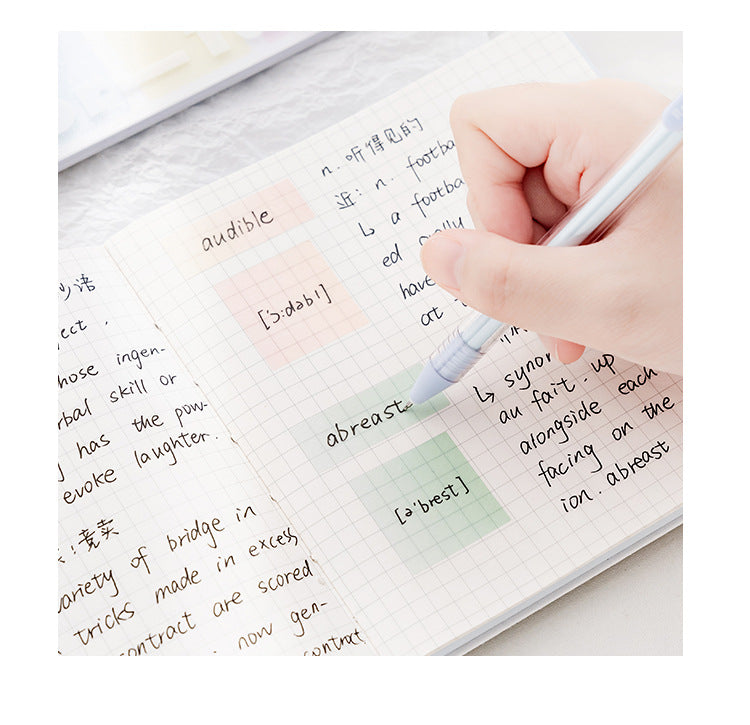 妙语
ect.
hose ingen-
rbal skill or
has the pow-
evoke laughter.
竞卖
variety of bridge in
tricks made in excess
contract are scored
now gen-
contrat
audible
['ɔ:dəbl]
n. 听得见的
近: n. footba
↳ a footba
ed
have
at
abreast
[ə'brest]
↳ synon
au fait. up
alongside each
facing on the
ion. abreast